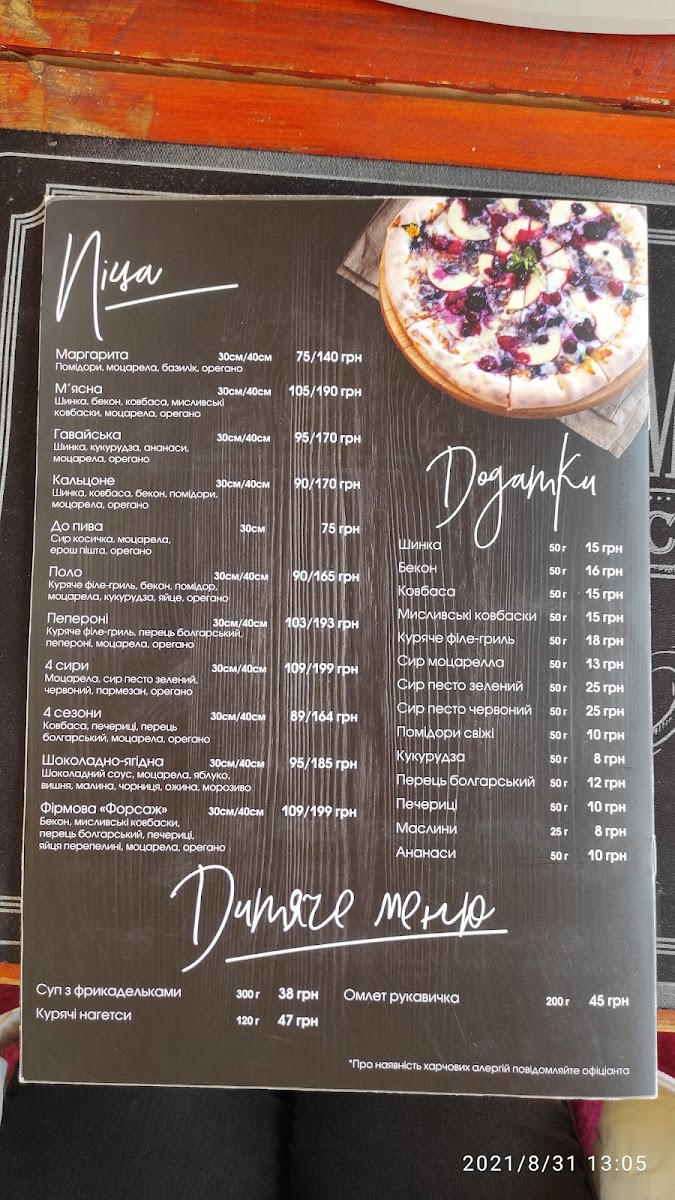 Піца
Маргарита 30см/40см 75/140 грн
Помідори, моцарела, базилік, орегано
М'ясна 30см/40см 105/190 грн
Шинка, бекон, ковбаса, мисливські
ковбаски, моцарела, орегано
Гавайська 30см/40см 95/170 грн
Шинка, кукурудза, ананаси,
моцарела, орегано
Кальцоне 30см/40см 90/170 грн
Шинка, ковбаса, бекон, помідори,
моцарела, орегано
До пива 30см 75 грн
Сир косичка, моцарела,
ерош пішта, орегано
Поло 30см/40см 90/165 грн
Куряче філе-гриль, бекон, помідор,
моцарела, кукурудза, яйце, орегано
Пепероні 30см/40см 103/193 грн
Куряче філе-гриль, перець болгарський,
пепероні, моцарела, орегано
4 сири 30см/40см 109/199 грн
Моцарела, сир песто зелений,
червоний, пармезан, орегано
4 сезони 30см/40см 89/164 грн
Ковбаса, печериці, перець
болгарський, моцарела, орегано
Шоколадно-ягідна 30см/40см 95/185 грн
Шоколадний соус, моцарела, яблуко,
вишня, малина, чорниця, ожина, морозиво
Фірмова «Форсаж» 30см/40см 109/199 грн
Бекон, мисливські ковбаски,
перець болгарський, печериці,
яйця перепелині, моцарела, орегано
Додатки
Шинка 50 г 15 грн
Бекон 50 г 16 грн
Ковбаса 50 г 15 грн
Мисливські ковбаски 50 г 15 грн
Куряче філе-гриль 50 г 18 грн
Сир моцарелла 50 г 13 грн
Сир песто зелений 50 г 25 грн
Сир песто червоний 50 г 25 грн
Помідори свіжі 50 г 10 грн
Кукурудза 50 г 8 грн
Перець болгарський 50 г 12 грн
Печериці 50 г 10 грн
Маслини 25 г 8 грн
Ананаси 50 г 10 грн
Дитяче меню
Суп з фрикадельками 300 г 38 грн
Курячі нагетси 120 г 47 грн
Омлет рукавичка 200 г 45 грн
*Про наявність харчових алергій повідомляйте офіціанта
2021/8/31 13:05